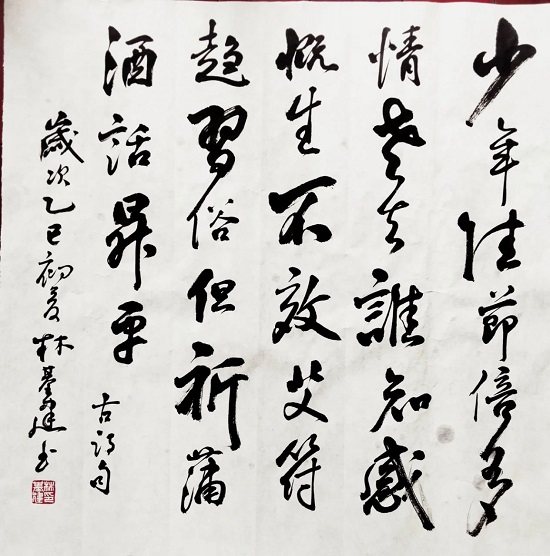 少年佳節倍多
情老去誰知感
慨生不效艾符
趋習俗但祈蒲
酒話昇平 古詩句
歲次乙巳初夏林基建书